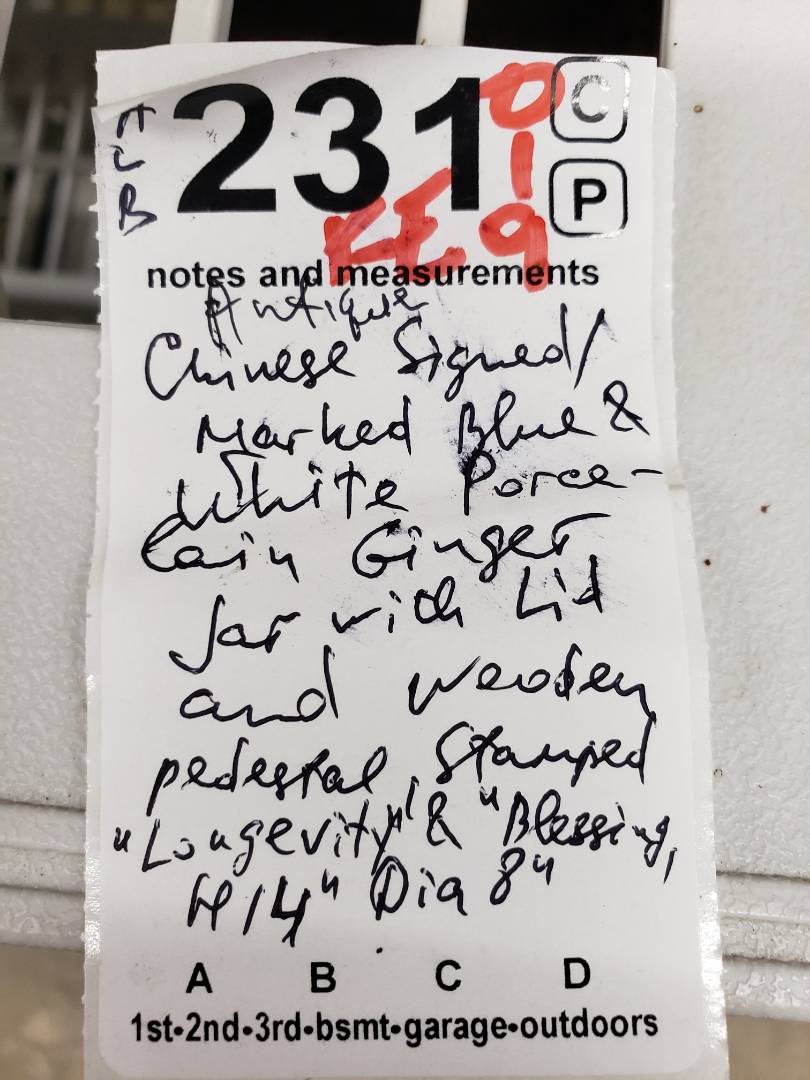 A
L
B
231
0
1
9
C
P
KE
notes and measurements
Antique
Chinese Signed/
Marked Blue &
White Porce-
lain Ginger
Jar with Lid
and wooden
pedestal, Stamped
"Longevity" & "Blessing,
H 14" Dia 8"
A B C D
1st•2nd•3rd•bsmt•garage•outdoors